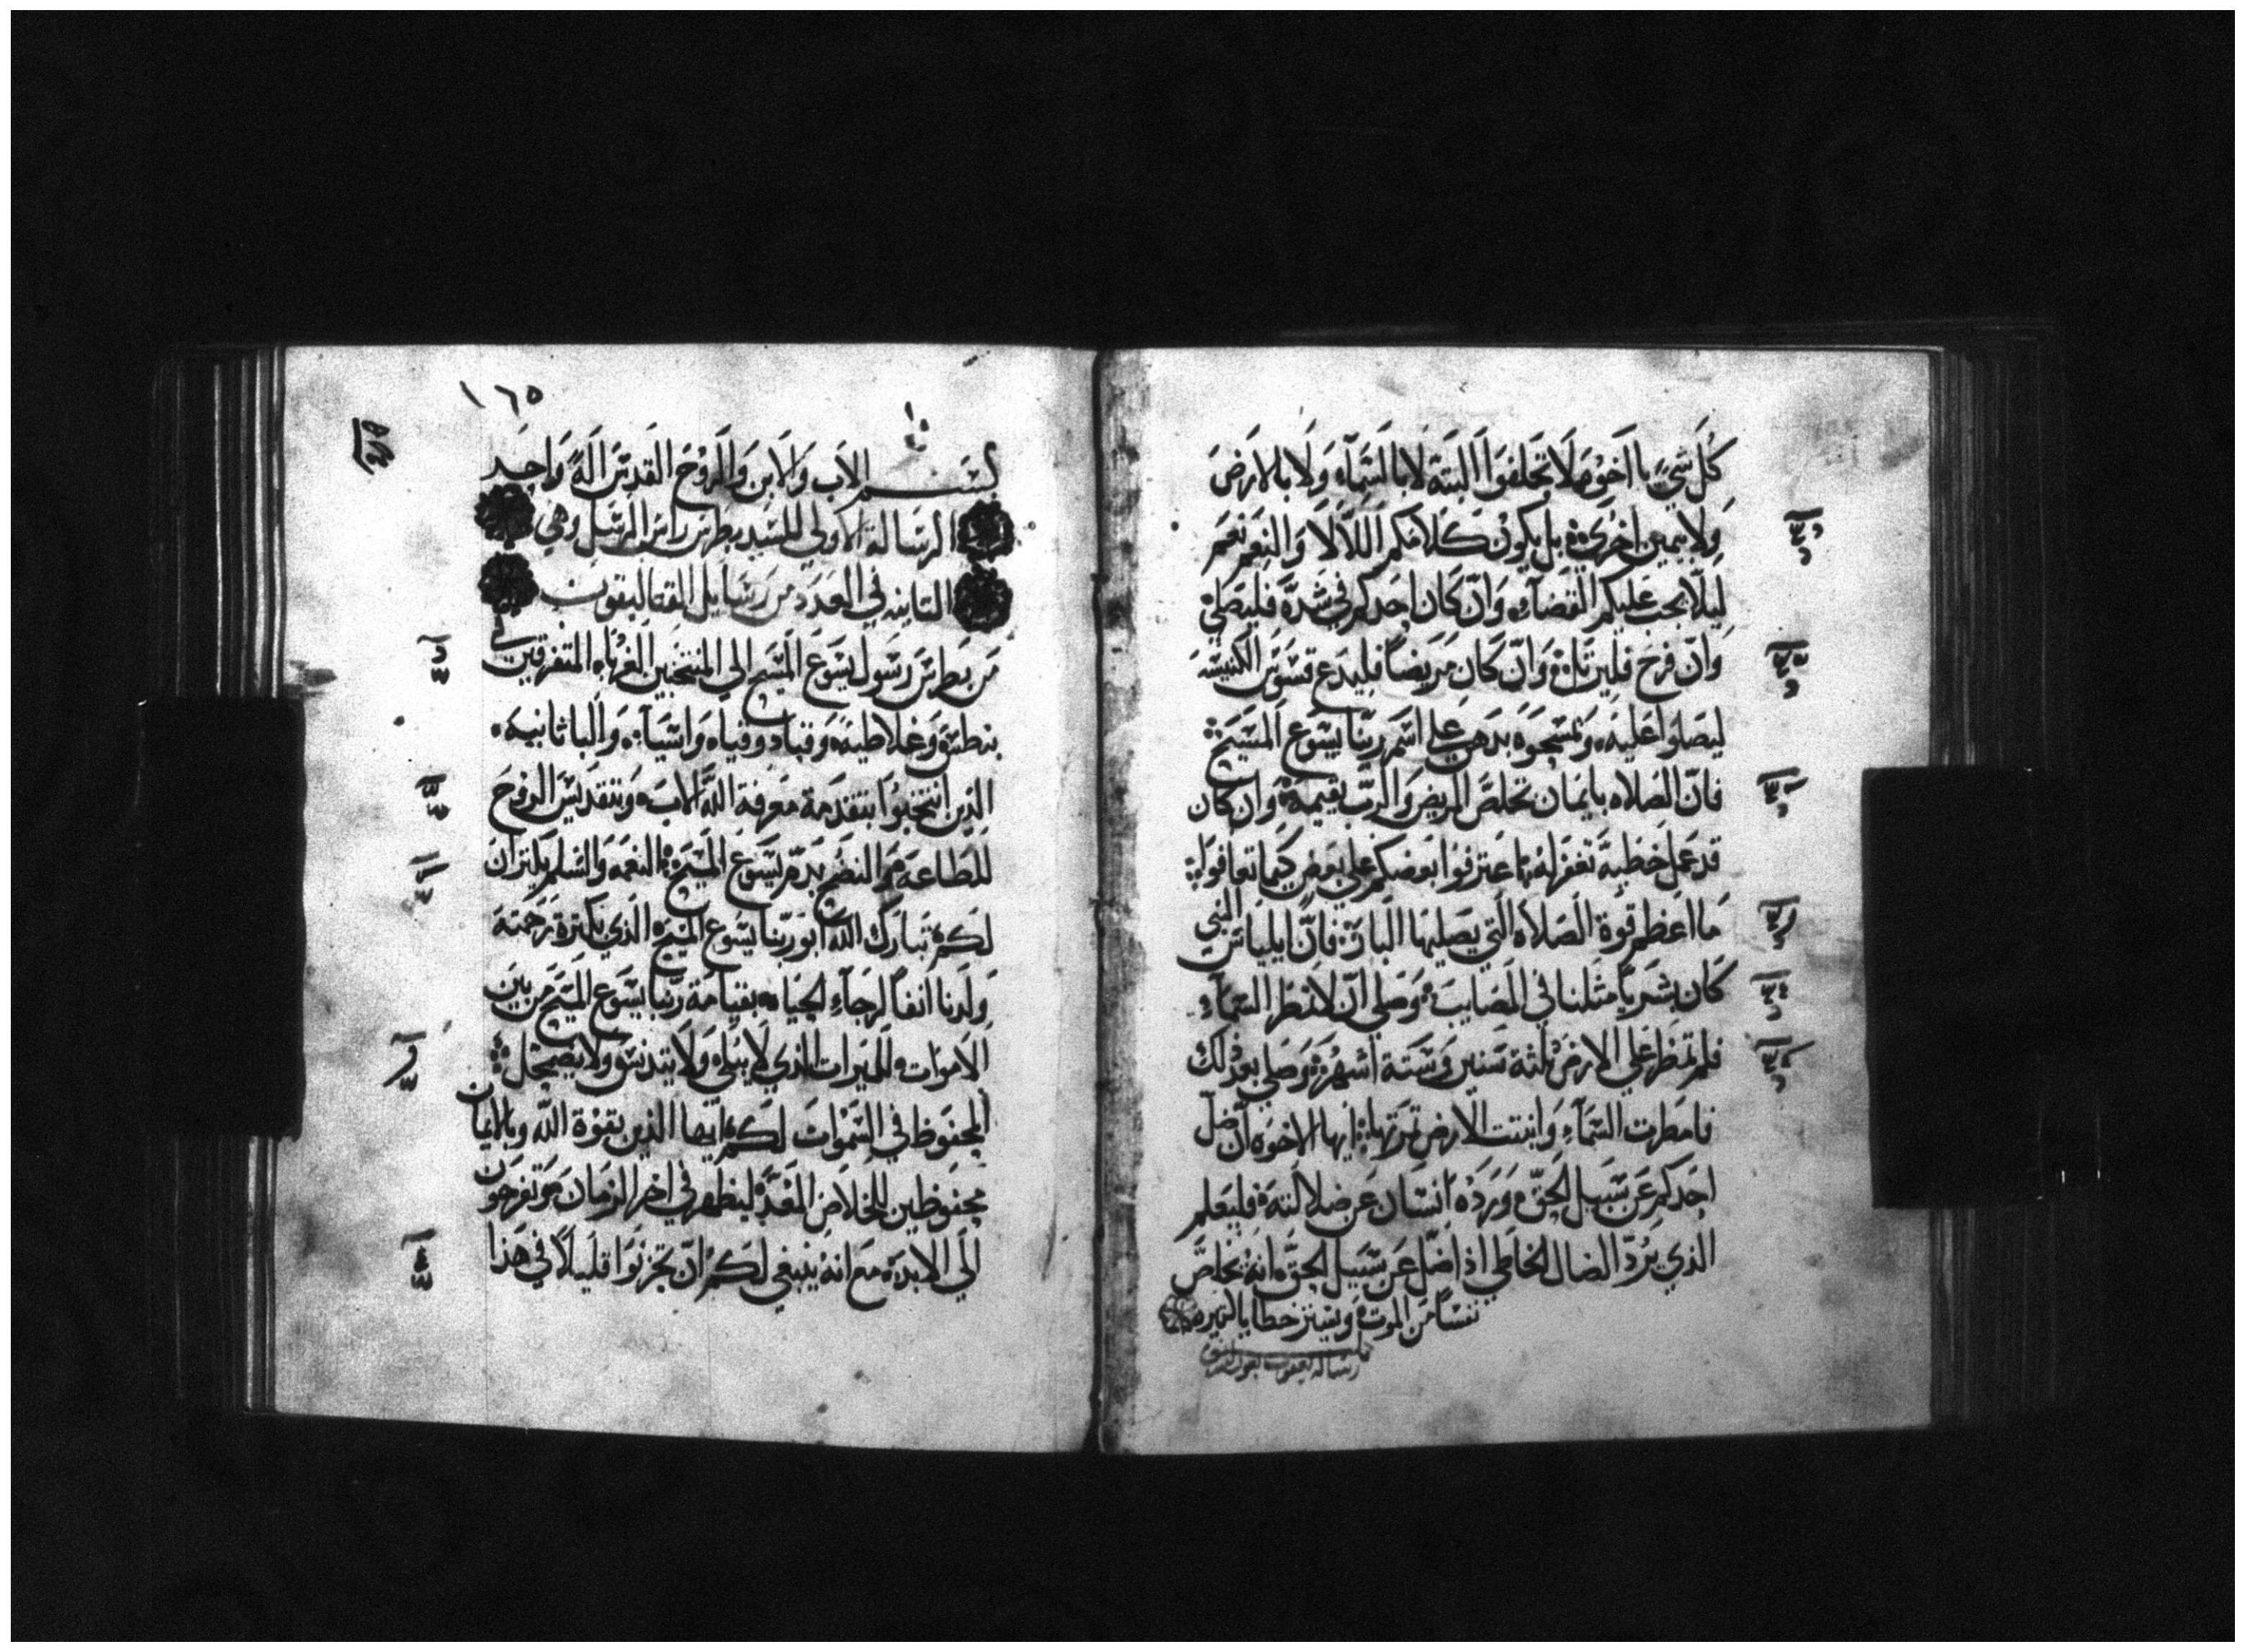 كل شي يا اخوه لا تحلفوا البتة لا بالسمآء ولا بالارض
ولا بيمين اخري بل يكون كلامكم اللا لا والنعم نعم
ليلا يجب عليكم القضآء وان كان احدكم في شدة فليصلي
وان فرح فليرتل وان كان مريضا فليدع قسوس الكنيسه
ليصلوا عليه ويمسحوه بدهن علي اسم ربنا يسوع المسيح
فان الصلاه بايمان تخلص المريض والرب يقيمه وان كان
قد عمل خطية تغفر له اعترفوا بعضكم علي بعض كيما تعافوا
ما اعظم قوة الصلاه التي يصليها البار فان ايلياس النبي
كان بشريا مثلنا في المصايب وصلي ان لا تمطر السمآء
فلم تمطر علي الارض ثلثة سنين وستة اشهر وصلي بعد ذلك
فامطرت السمآء وانبتت الارض ثمرتها ايها الاخوه ان ضل
احدكم عن سبيل الحق ورده انسان عن ضلالته فليعلم
الذي يرد الضال الخاطي اذا ضل عن سبيل الحق انه يخلص
نفسا من الموت ويستر خطايا كثيره
رسالة يعقوب
١٦٥
بسم الاب والابن والروح القدس اله واحد
الرسالة الاولي للسيد بطرس راس الرسل وهي
الثانيه في العدد من رسايل القتاليقون
من بطرس رسول يسوع المسيح الي المنتخبين الغرباء المتفرقين في
بنطس وغلاطيه وقبادوقياه واسياه والباثانيه
الذين انتخبوا بتقدمة معرفة الله الاب وبتقديس الروح
للطاعه والنضح بدم يسوع المسيح النعمه والسلم يكثران
لكم تبارك الله ابو ربنا يسوع المسيح الذي بكثرة رحمته
ولدنا انفا لرجآء الحياه بقيامة ربنا يسوع المسيح من بين
الاموات للميراث الذي لا يبلي ولا يتدنس ولا يضمحل
المحفوظ في السموات لكم ايها الذين بقوة الله وبالايمان
محفوظين للخلاص المعد ليظهر في اخر الزمان وتفرحون
الي الابد مع انه ينبغي لكم ان تحزنوا قليلا في هذا